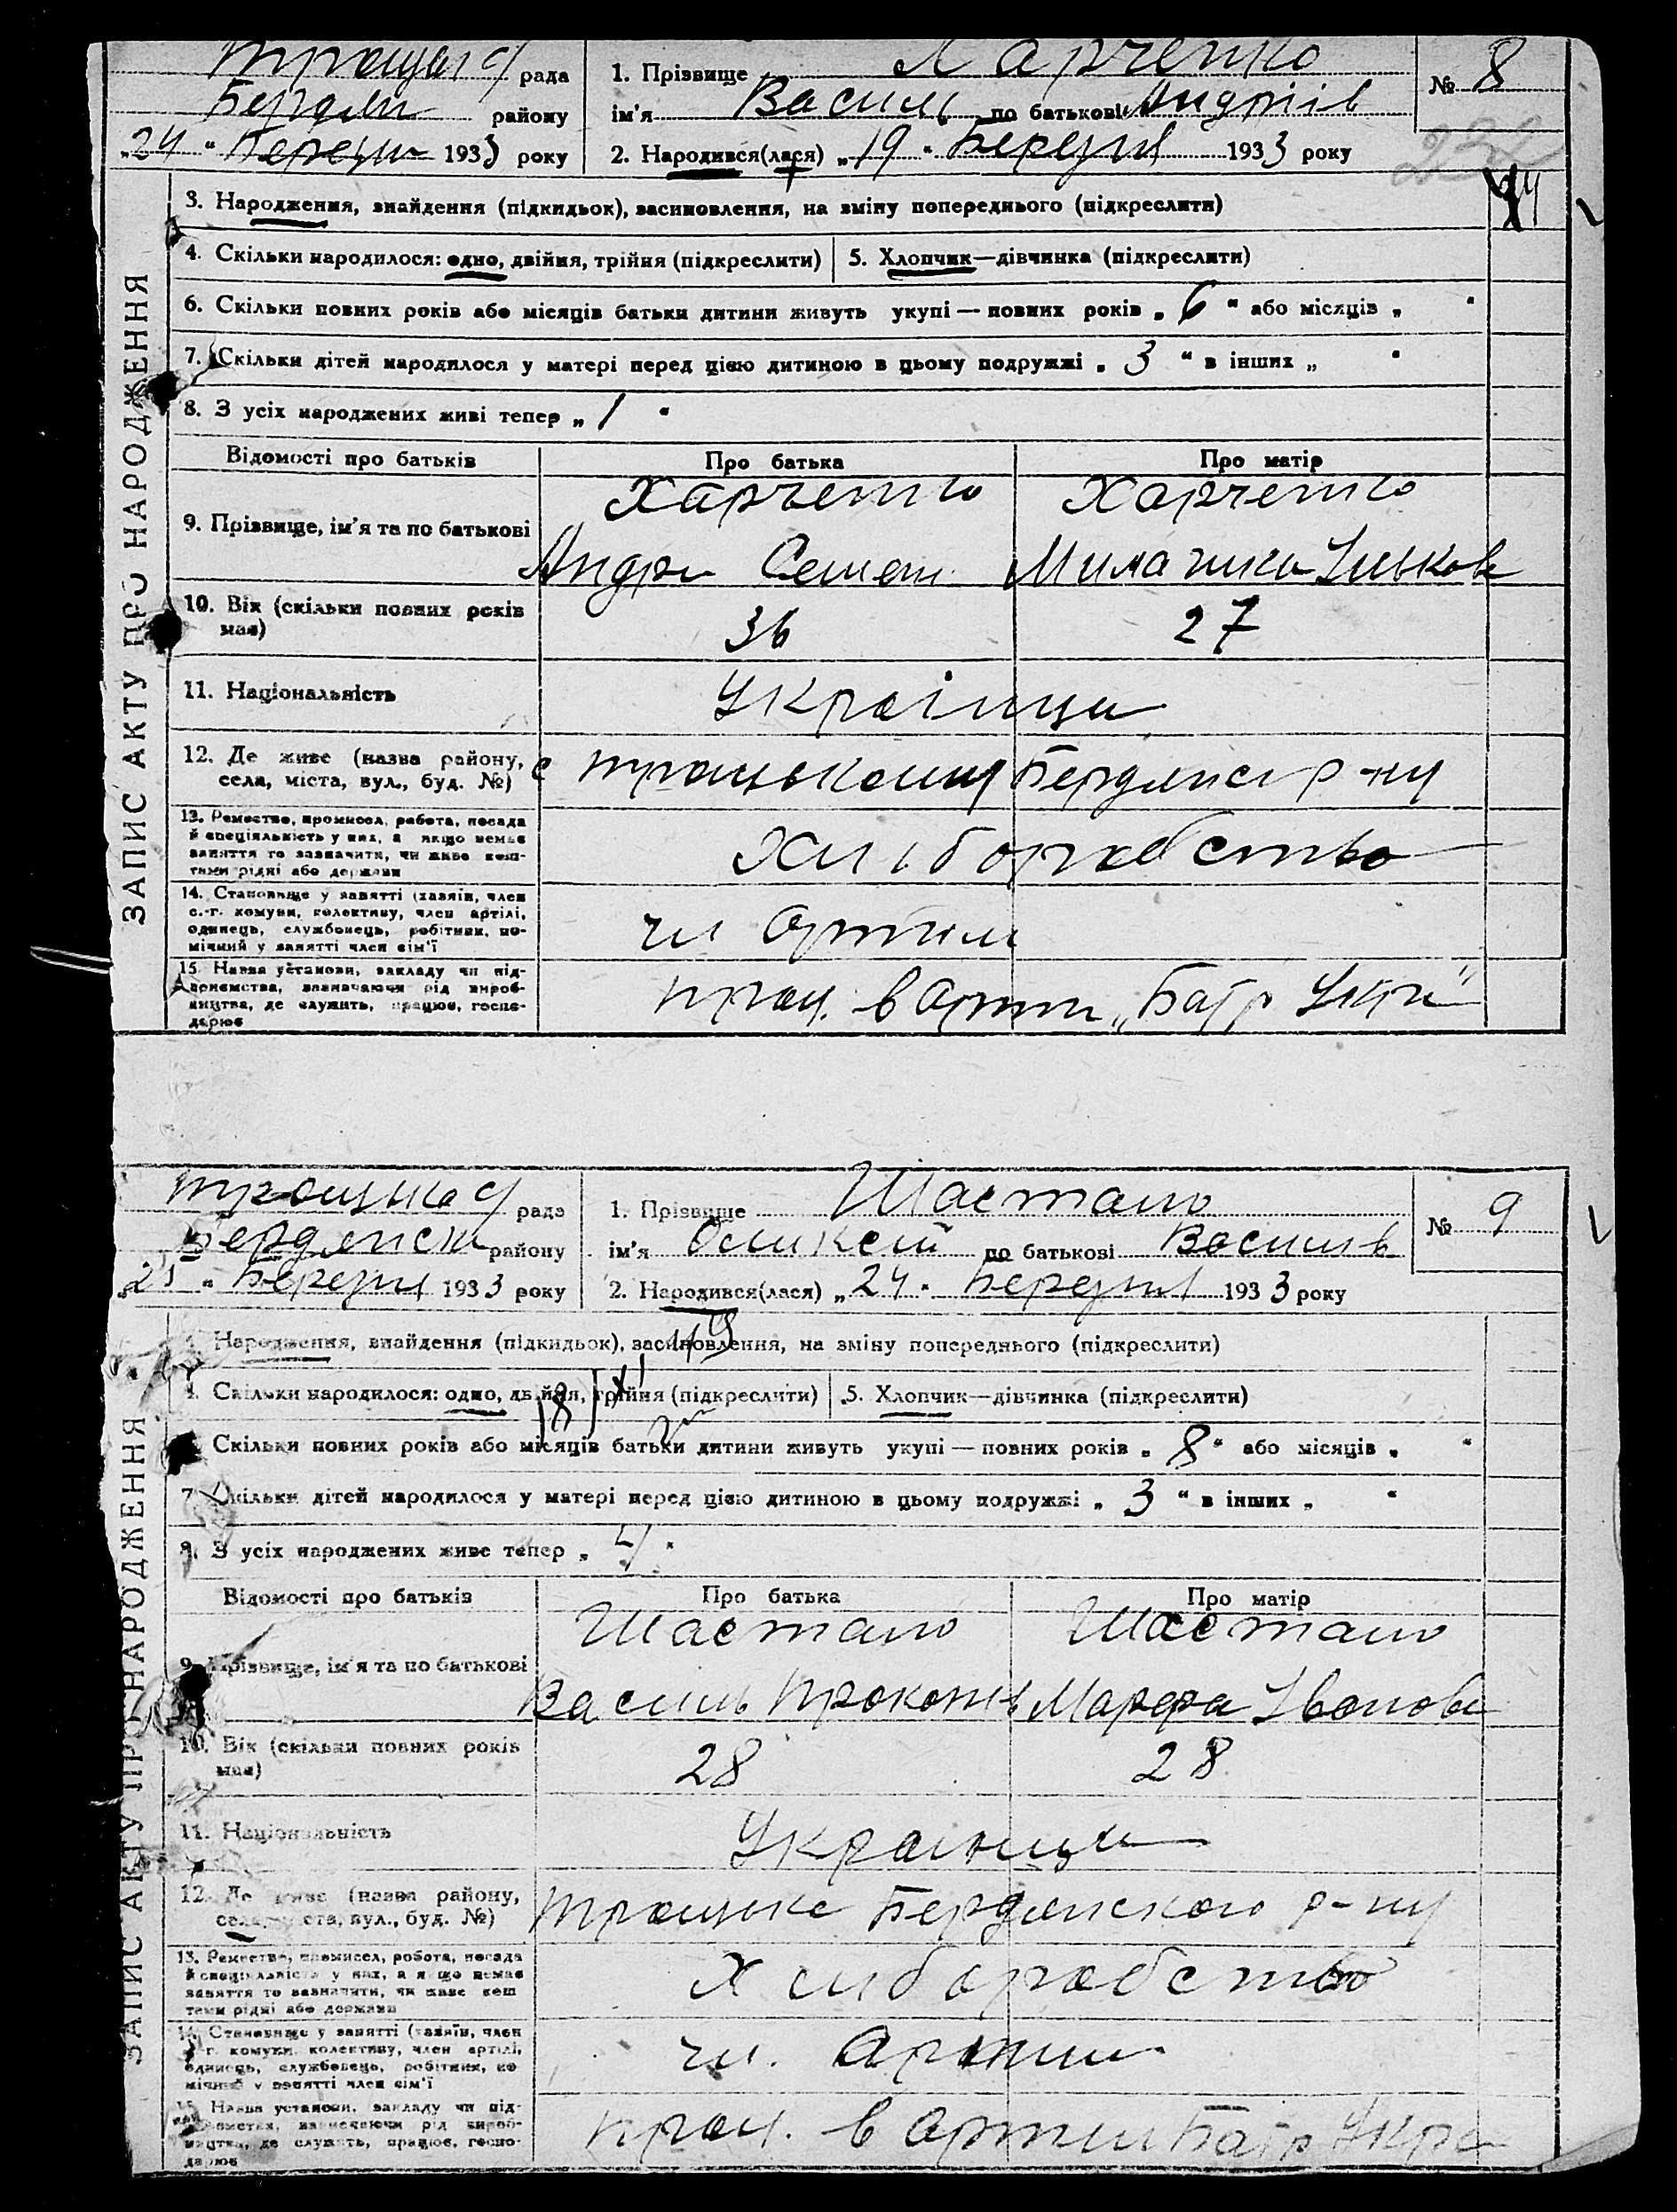 рада
району
„24“ 1933 року
1. Прізвище Харченко
ім'я Василь по батькові Андріїв
2. Народився(лася) „19“ Березня 1933 року
№ 8
3. Народження, знайдення (підкидьок), засиновлення, на зміну попереднього (підкреслити)
4. Скільки народилося: одно, двійня, трійня (підкреслити)
5. Хлопчик—дівчинка (підкреслити)
6. Скільки повних років або місяців батьки дитини живуть укупі — повних років „6“ або місяців „ “
7. Скільки дітей народилося у матері перед цією дитиною в цьому подружжі „3“ в інших „ “
8. З усіх народжених живі тепер „1“
Відомості про батьків
Про батька
Про матір
9. Прізвище, ім'я та по батькові
Харченко
Андрі Семен
Харченко
10. Вік (скільки повних років має)
36
27
11. Національність
Україньци
12. Де живе (назва району, села, міста, вул., буд. №)
р-ну
13. Ремество, промисел, робота, посада
й спеціяльність у них, а якщо немає
заняття то зазначити, чи живе кош-
тами рідні або держави
Хліборобство
14. Становище у занятті (хазяїн, член
с.-г. комуни, колективу, член артілі,
одинець, службовець, робітник, по-
мічний у занятті член сім'ї
чл Артили
15. Назва установи, закладу чи під-
приємства, зазначаючи рід вироб-
ництва, де служить, працює, госпо-
дарює
прац. в Арти
ЗАПИС АКТУ ПРО НАРОДЖЕННЯ
рада
Бердянски району
1933 року
1. Прізвище Шастало
ім'я по батькові Василів
2. Народився(лася) „24“ Березня 1933 року
№ 9
Народження, знайдення (підкидьок), засиновлення, на зміну попереднього (підкреслити)
4. Скільки народилося: одно, двійня, трійня (підкреслити)
5. Хлопчик—дівчинка (підкреслити)
Скільки повних років або місяців батьки дитини живуть укупі — повних років „8“ або місяців „ “
7. Скільки дітей народилося у матері перед цією дитиною в цьому подружжі „3“ в інших „ “
8. З усіх народжених живе тепер „4“
Відомості про батьків
Про батька
Про матір
9. Прізвище, ім'я та по батькові
Шастало
Василь Прокопів
Шастало
Марфа Іванова
10. Вік (скільки повних років має)
28
28
11. Національність
12. Де живе (назва району, села, міста, вул., буд. №)
Троцьке Бердянского р-ну
13. Ремество, промисел, робота, посада
й спеціяльність у них, а якщо немає
заняття то зазначити, чи живе кош
тами рідні або держави
Хлиборобство
14. Становище у занятті (хазяїн, член
с.-г. комуни, колективу, член артілі,
одинець, службовець, робітник, по
мічний у занятті член сім'ї
чл. Артили
Назва установи, закладу чи під-
приємства, зазначаючи рід вироб-
ництва, де служить, працює, госпо-
дарює
прац. в Артили
ЗАПИС АКТУ ПРО НАРОДЖЕННЯ